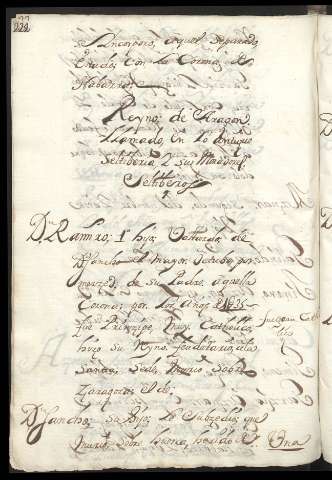 222
se Incorporo, aquel separado
Estado, con la Corona, de
Nabarra.
Reyno, de Aragon
llamado, en lo antiguo
Seltiberia, y sus Moradores
Seltiberos
Dn. Ramiro, 1º hijo Vastardo, de
Dn. Sancho el Mayor, obtubo por
merzed, de su Padre, aquella
Corona, por los años, 1035
fue Prinzipe, muy Catholico,
hizo su Reyno, feudatario, ala
Santa, Sede, Murio, sobre
Zaragoza, el de
Dn. Sancho, su hijo, le Subzedio, que
murio, sobre huesca, herido de Una